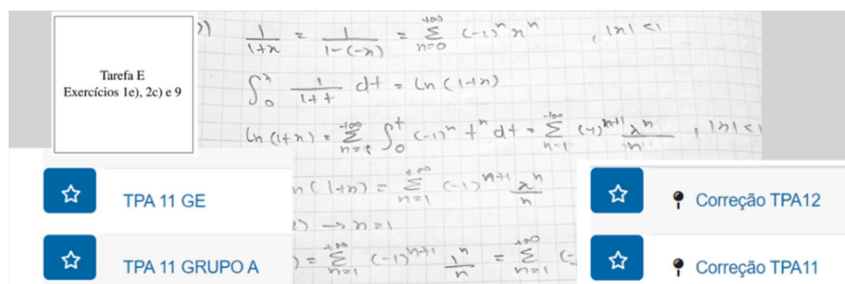 Tarefa E
Exercícios 1e), 2c) e 9
) 1/(1+x) = 1/(1-(-x)) = +∞ Σ n=0 (-1)^n x^n , |x| < 1
∫_0^x 1/(1+t) dt = ln(1+x)
ln(1+x) = +∞ Σ ∫_0 (-1)^n t^n dt = +∞ Σ n=1 (-1)^{n+1} x^n/n , |x| < 1
n(1+x) = +∞ Σ n=1 (-1)^{n+1} x^n/n
2) → x=1
) = +∞ Σ n=1 (-1)^{n+1} 1^n/n = +∞ Σ n=1 (-
TPA 11 GE
TPA 11 GRUPO A
Correção TPA12
Correção TPA11